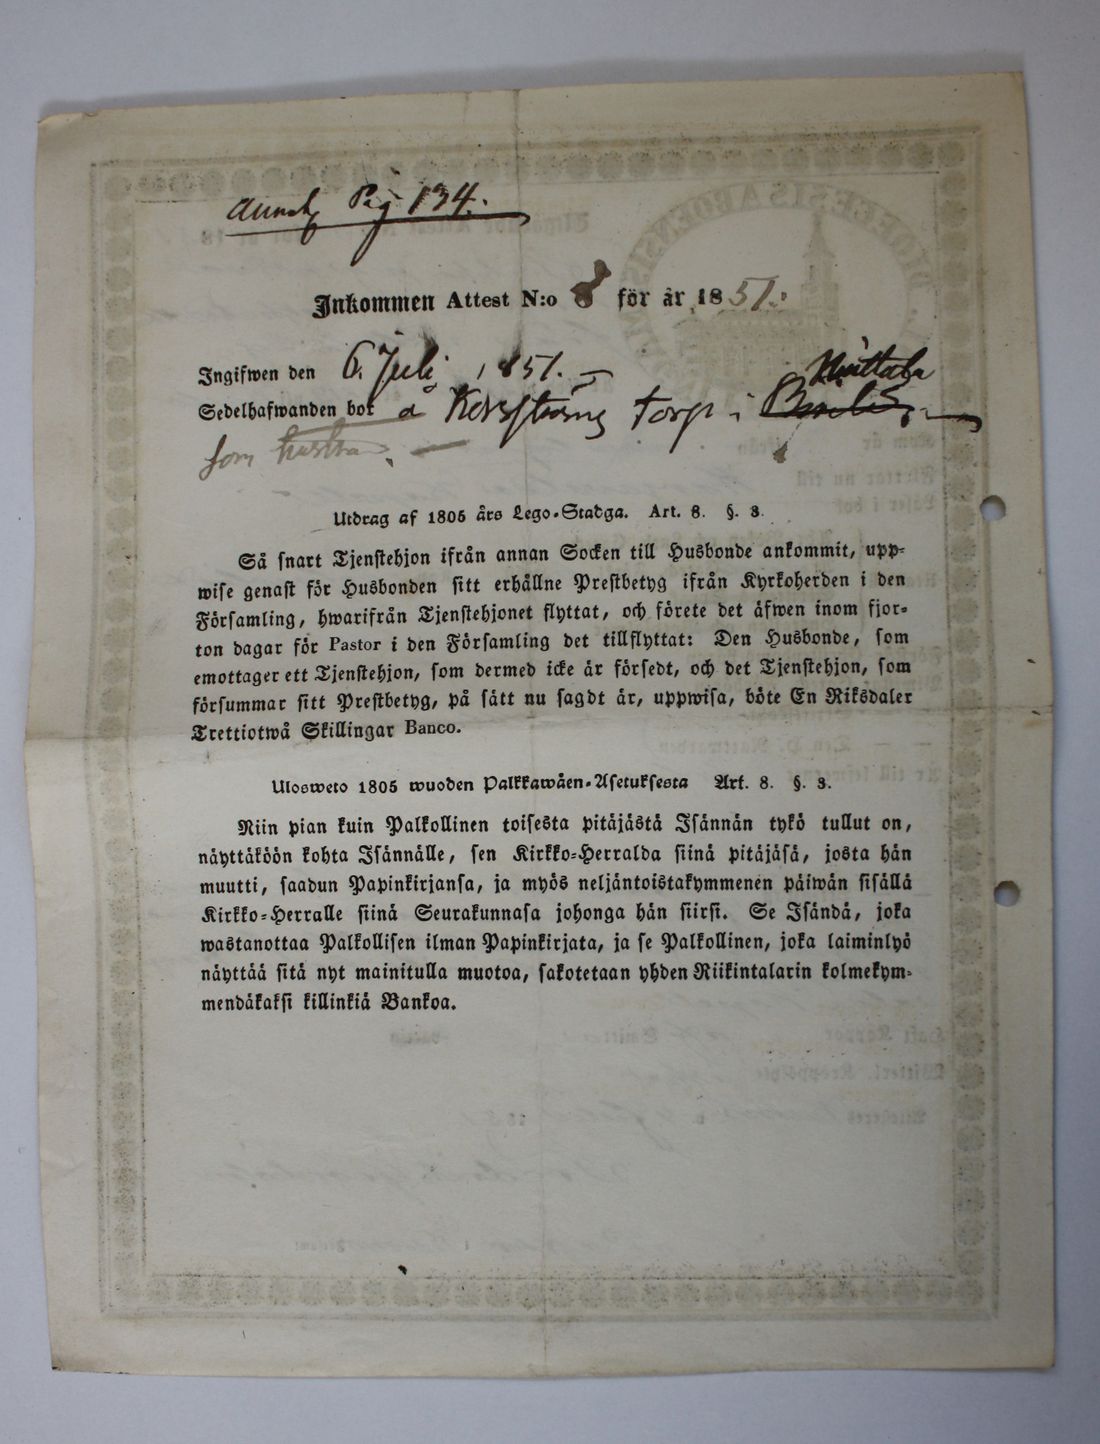 Pag 134.
Inkommen Attest N:o 8 för år 1851.
Ingifwen den 6. Juli 1851. –
Sedelhafwanden bor å torp i
som hustru. –
Utdrag af 1805 års Lego-Stadga. Art. 8. §. 3.
Så snart Tjenstehjon ifrån annan Socken till Husbonde ankommit, upp-
wise genast för Husbonden sitt erhållne Prestbetyg ifrån Kyrkoherden i den
Församling, hwarifrån Tjenstehjonet flyttat, och förete det äfwen inom fjor-
ton dagar för Pastor i den Församling det tillflyttat: Den Husbonde, som
emottager ett Tjenstehjon, som dermed icke är försedt, och det Tjenstehjon, som
försummar sitt Prestbetyg, på sätt nu sagdt är, uppwisa, böte En Riksdaler
Trettiotwå Skillingar Banco.
Ulosweto 1805 wuoden Palkkawäen-Asetuksesta Art. 8. §. 3.
Niin pian kuin Palkollinen toisesta pitäjästä Isännän tykö tullut on,
näyttäköön kohta Isännälle, sen Kirkko-Herralda siinä pitäjäsä, josta hän
muutti, saadun Papinkirjansa, ja myös neljäntoistakymmenen päiwän sisällä
Kirkko-Herralle siinä Seurakunnasa johonga hän siirsi. Se Isändä, joka
wastanottaa Palkollisen ilman Papinkirjata, ja se Palkollinen, joka laiminlyö
näyttää sitä nyt mainitulla muotoa, sakotetaan yhden Riikintalarin kolmekym-
mendäkaksi killinkiä Bankoa.